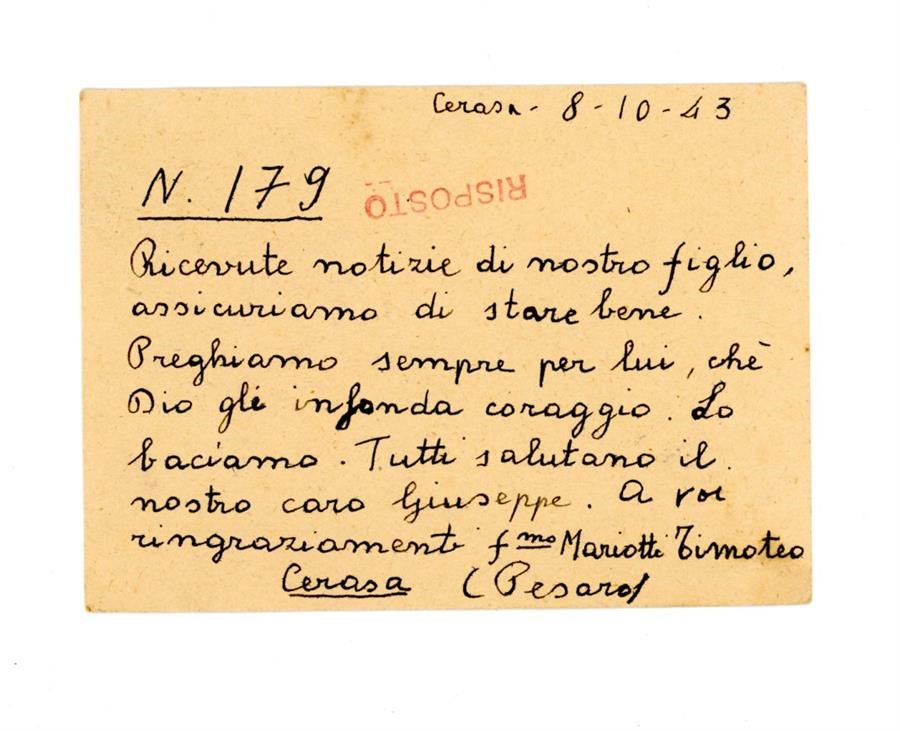 Cerasa - 8-10-43
N. 179
RISPOSTO
Ricevute notizie di nostro figlio,
assicuriamo di stare bene.
Preghiamo sempre per lui, chè
Dio gli infonda coraggio. Lo
baciamo. Tutti salutano il
nostro caro Giuseppe. A voi
ringraziamenti fmo Mariotti Timoteo
Cerasa (Pesaro)